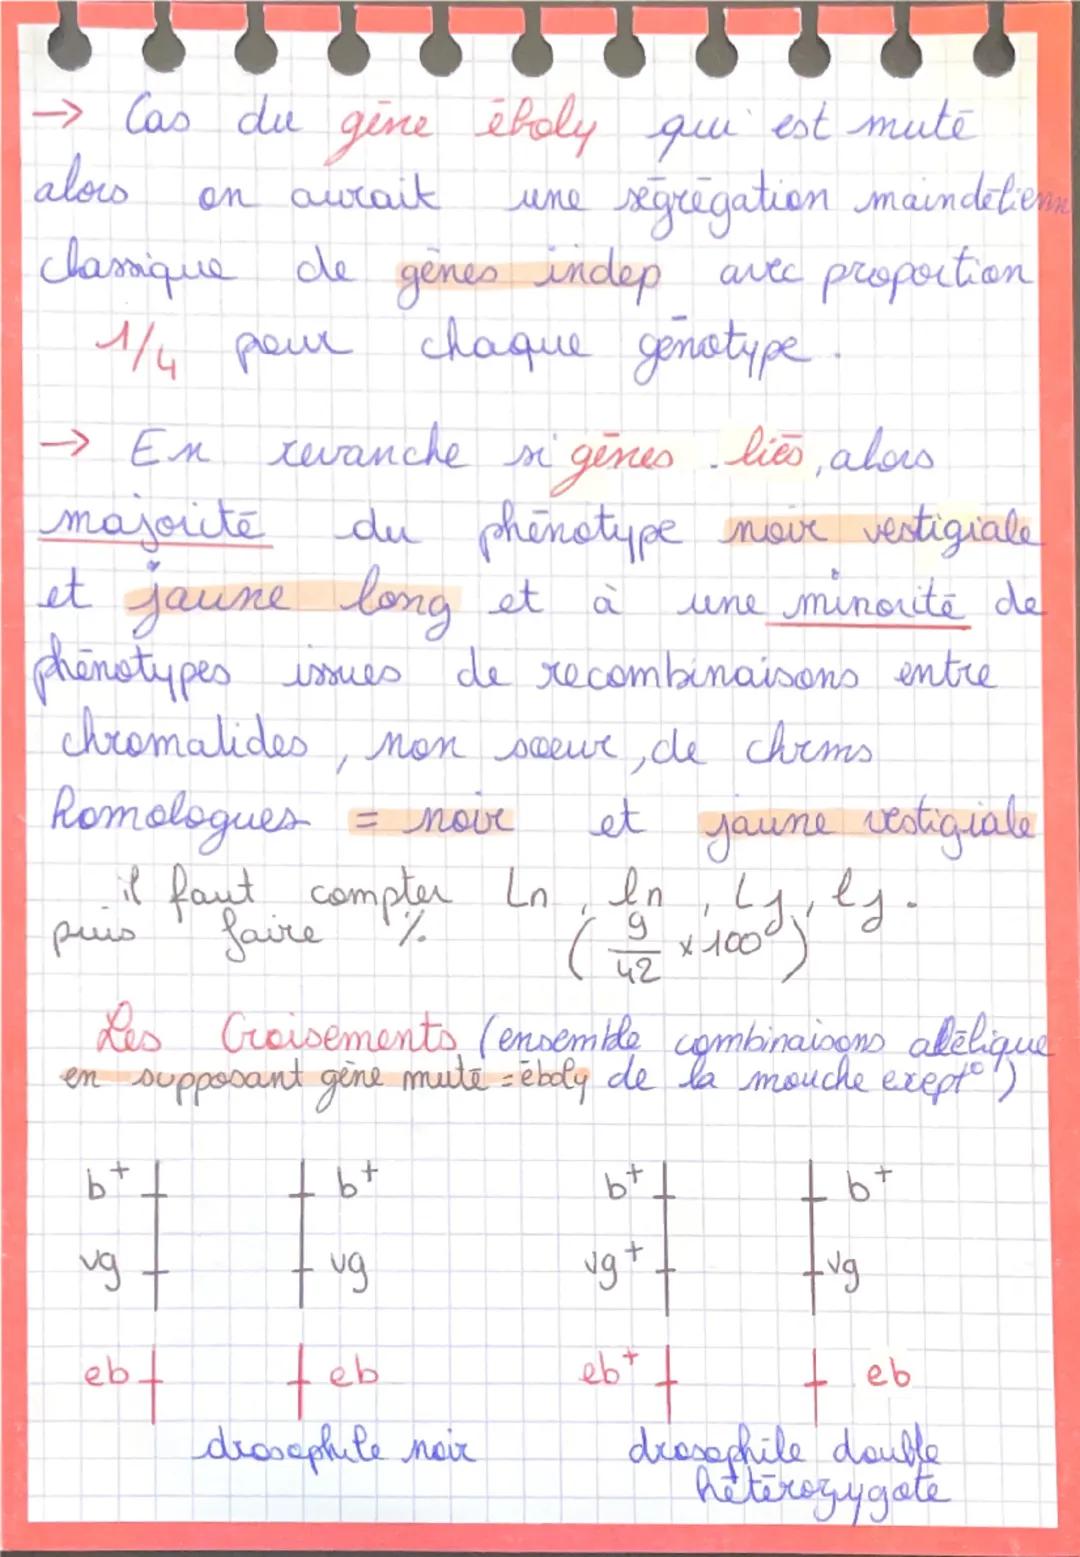 → Cas du gène éboly qui est muté
alors on aurait une ségrégation maindélienn
classique de gènes indep avec proportion
1/4 pour chaque génotype.
→ En revanche si gènes liés, alors
majorité du phénotype noir vestigiale
et jaune long et à une minorité de
phénotypes issues de recombinaisons entre
chromatides, non soeur, de chrms
homologues = noir et jaune vestigiale
il faut compter Ln, ln, Lj, lj.
puis faire % (9/42 x 100)
Les Croisements (ensemble combinaisons allélique
en supposant gène muté = éboly de la mouche except°)
b+ b+ b+ b+
vg vg vg+ vg
eb eb eb+ eb
drosophile noir drosophile double
hétérozygote